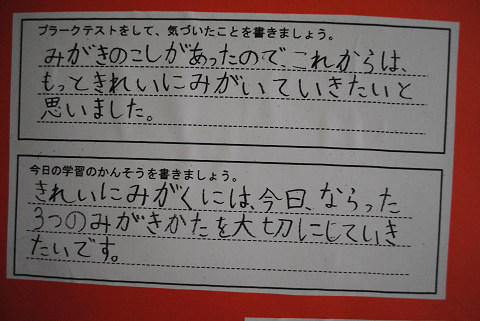 プラークテストをして、気づいたことを書きましょう。
みがきのこしがあったので、これからは、
もっときれいにみがいていきたいと
思いました。
今日の学習のかんそうを書きましょう。
きれいにみがくには、今日、ならった
3つのみがきかたを大切にしていき
たいです。